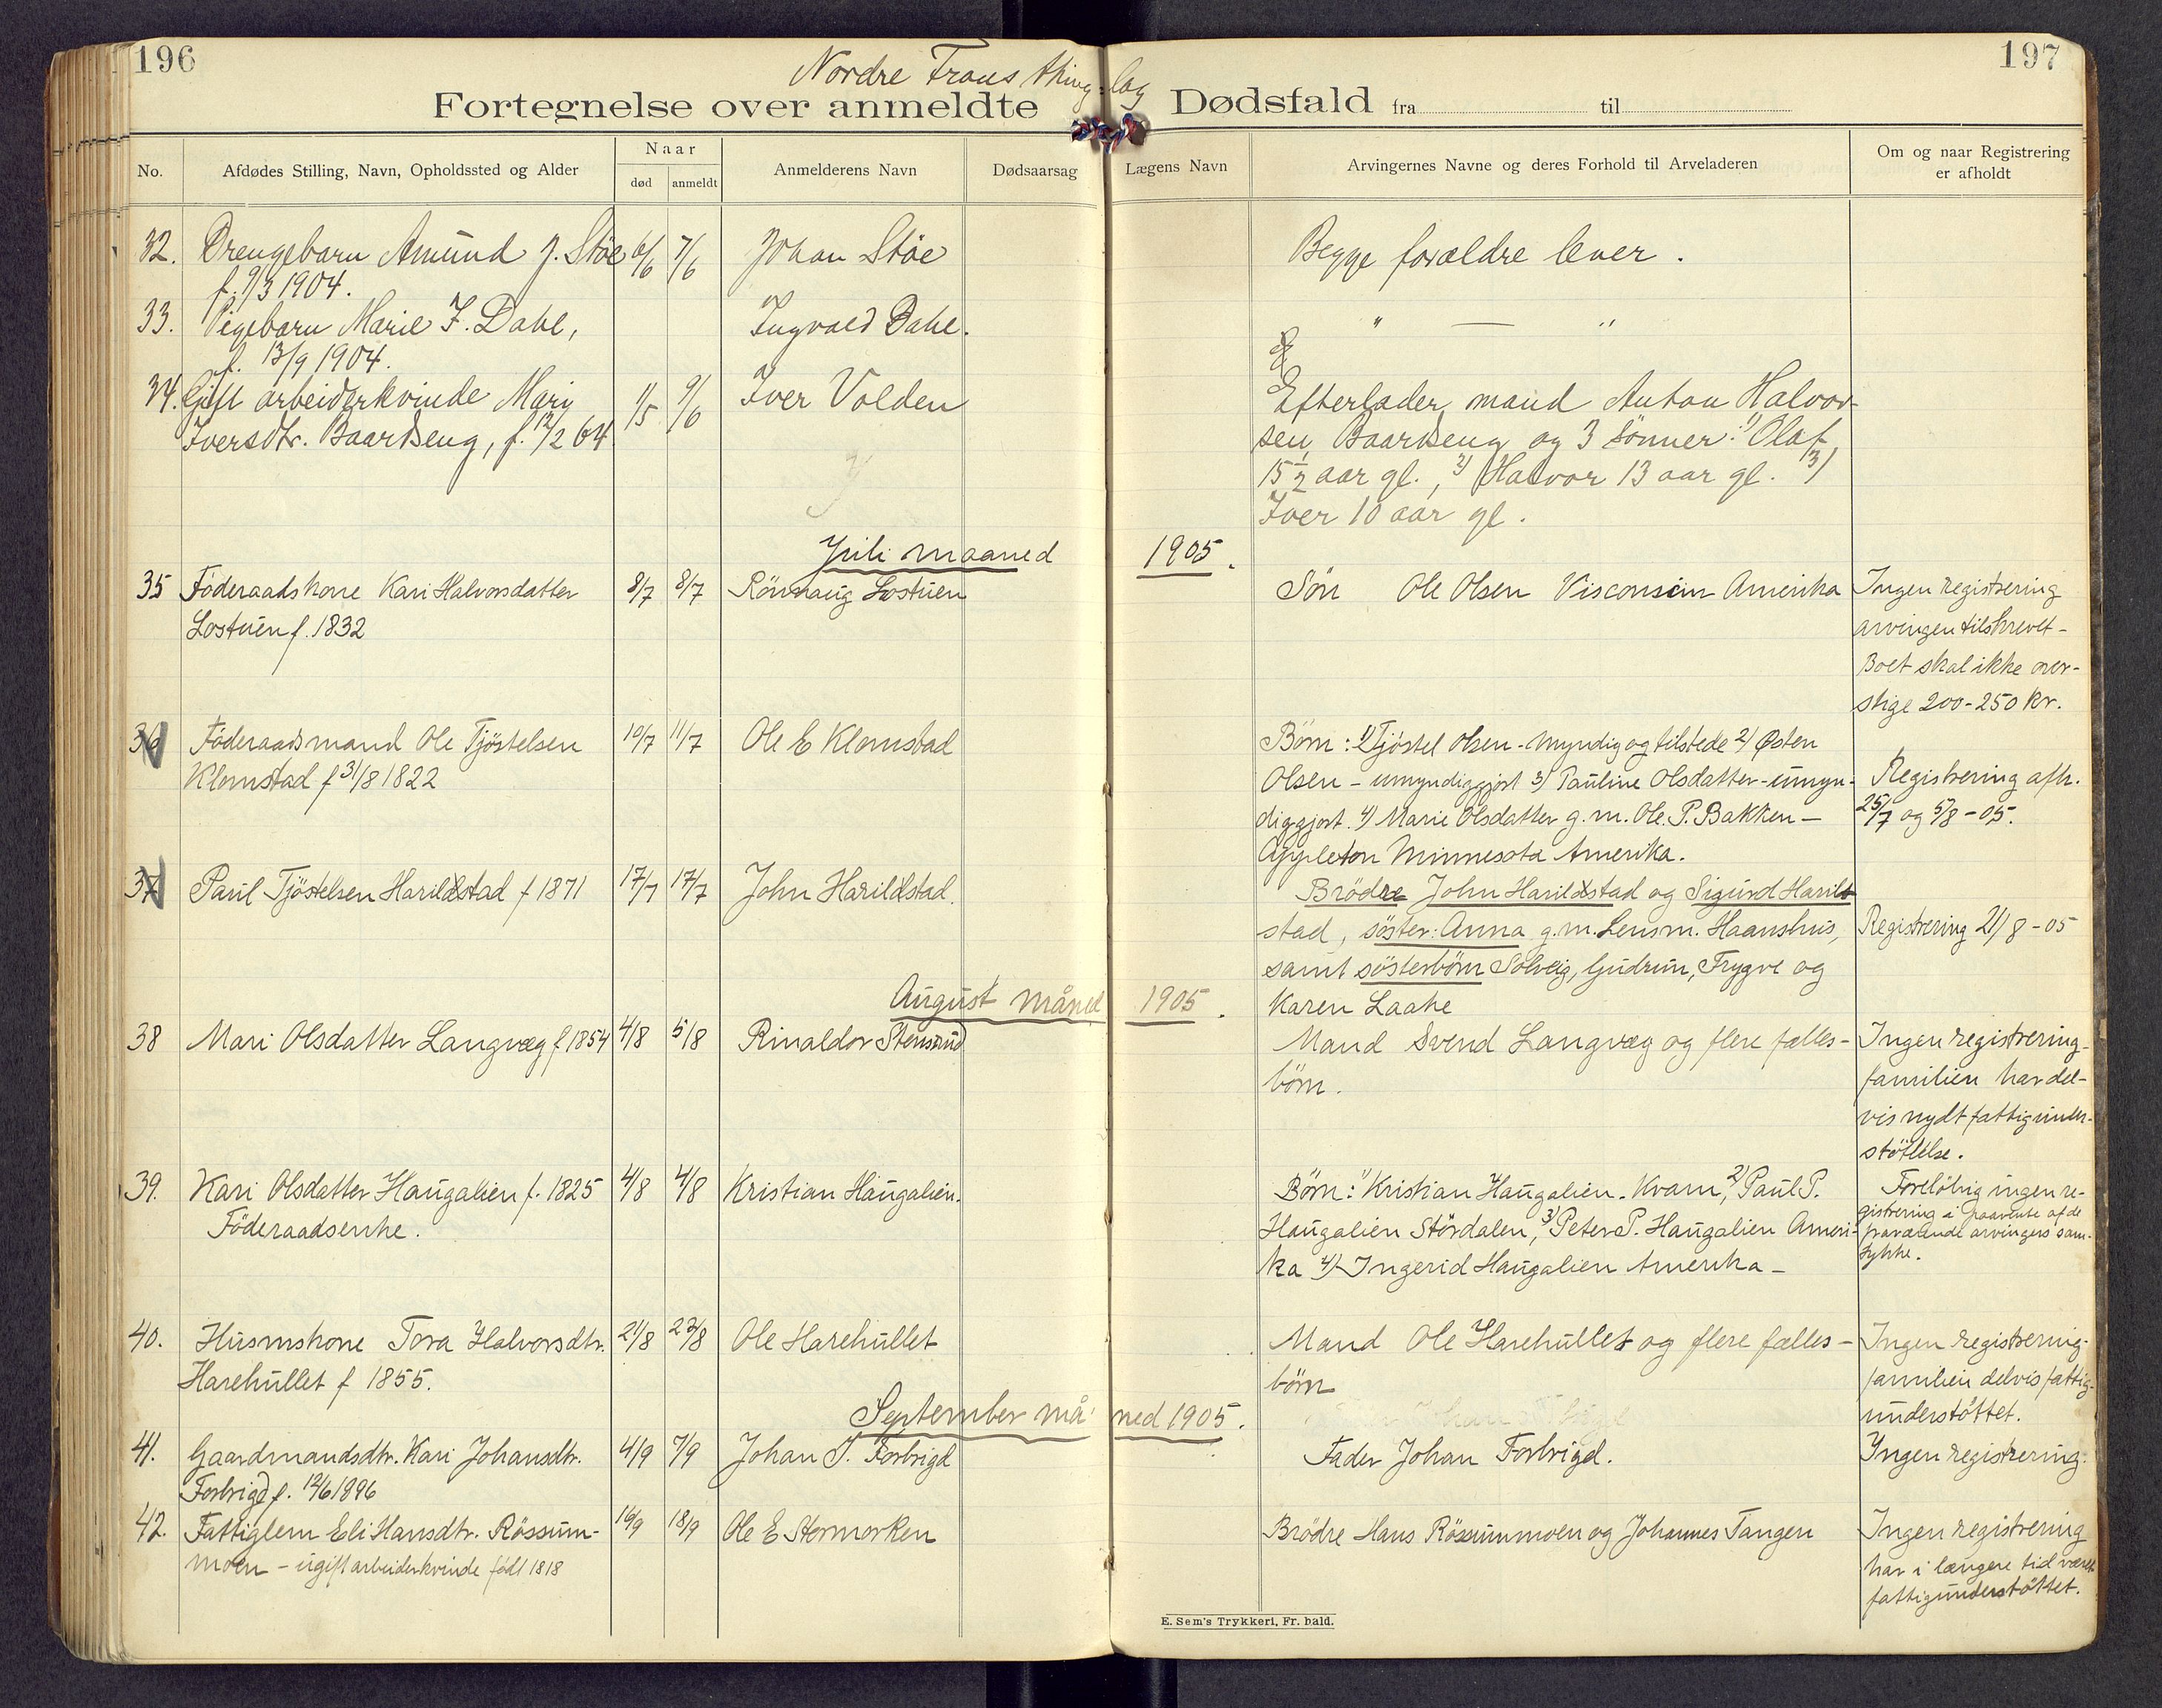 196
197
Nordre Frons thing-lag
Fortegnelse over anmeldte Dødsfald fra til
No.
Afdødes Stilling, Navn, Opholdssted og Alder
Naar
død
anmeldt
Anmelderens Navn
Dødsaarsag
Lægens Navn
Arvingernes Navne og deres Forhold til Arveladeren
Om og naar Registrering
er afholdt
32. Drengebarn Amund J. Stöe 6/6 7/6 Johan Stöe Begge forældre lever.
f. 9/3 1904.
33. Pigebarn Marie I. Dahl, Ingvald Dahl. " — "
f. 13/9 1904.
34. Gift arbeiderkvinde Mari 1/5 9/6 Iver Volden Efterlader mand Anton Halvor-
Iversdtr. Baardseng, f. 12/2 64 sen Baardseng og 3 sönner: 1) Olaf,
15 1/2 aar gl., 2) Halvor 13 aar gl. 3)
Iver 10 aar gl.
Juli maaned 1905.
35 Föderaadskone Kari Halvorsdatter 8/7 8/7 Rönnaug Lostuen Sön Ole Olsen Visconsin Amerika Ingen registrering
Lostuen f. 1832 arvingen tilskrevet -
Boet skal ikke over-
stige 200-250 kr.
36 Föderaadsmand Ole Tjöstelsen 10/7 11/7 Ole E Klomstad Börn: 1) Tjöstel Olsen - Myndig og tilstede 2) Østen
Klomstad f 31/8 1822 Olsen - umyndiggjort 3) Pauline Olsdatter - umyn- Registrering afh.
diggjort. 4) Marie Olsdatter g. m. Ole. P. Bakken — 25/7 og 5/8 - 05.
Appleton Minnesota Amerika.
37 Paul Tjöstelsen Harildstad f 1871 17/7 17/7 John Harildstad. Brödre John Harildstad og Sigurd Harild
stad, söster: Anna g. m. Lensm. Haanshus, Registrering 21/8 - 05
samt sösterbörn Solveig, Gudrun, Trygve og
August måned 1905. Karen Laake
38 Mari Olsdatter Langvæg f 1854 4/8 5/8 Rinaldor Stensrud Mand Svend Langvæg og flere fælles- Ingen registrering-
börn. familien har del-
vis nydt fattigunder-
stöttelse.
39. Kari Olsdatter Haugalien f. 1825 4/8 4/8 Kristian Haugalien. Börn: 1) Kristian Haugalien. Kvam, 2) Paul P. Foreløbig ingen re-
Föderaadsenke. Haugalien Stördalen, 3) Peter P. Haugalien Ameri- gistrering i paavente af de
ka 4) Ingerid Haugalien Amerika - fraværende arvingers sam-
tykke.
40. Husmskone Tora Halvorsdtr. 21/8 22/8 Ole Harehullet Mand Ole Harehullet og flere fælles- Ingen registrering-
Harehullet f 1855. börn familien delvis fattig-
understöttet.
September måned 1905.
41. Gaardmandsdtr. Kari Johansdtr. 4/9 7/9 Johan T. Forbrigd Fader Johan Forbrigd. Ingen registrering.
Forbrigd f. 12/6 1896
42. Fattiglem Eli Hansdtr. Rössum- 16/9 18/9 Ole E Stormorken Brödre Hans Rössummoen og Johannes Tangen Ingen registrering
moen - ugift arbeiderkvinde født 1818 har i længere tid været
fattigunderstöttet.
E. Sem's Trykkeri, Fr. hald.